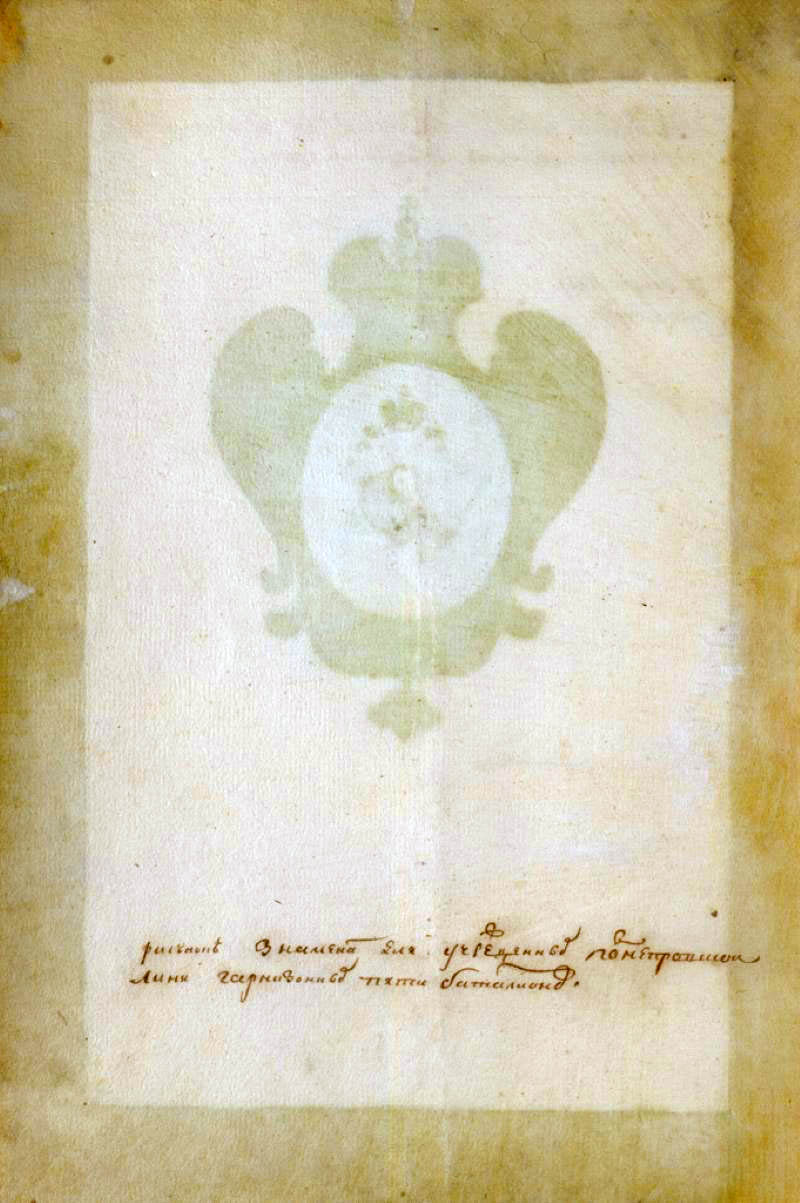 рисунокъ Знамена для учрежденныхъ
Лини гарнизонныхъ пяти баталионовъ.